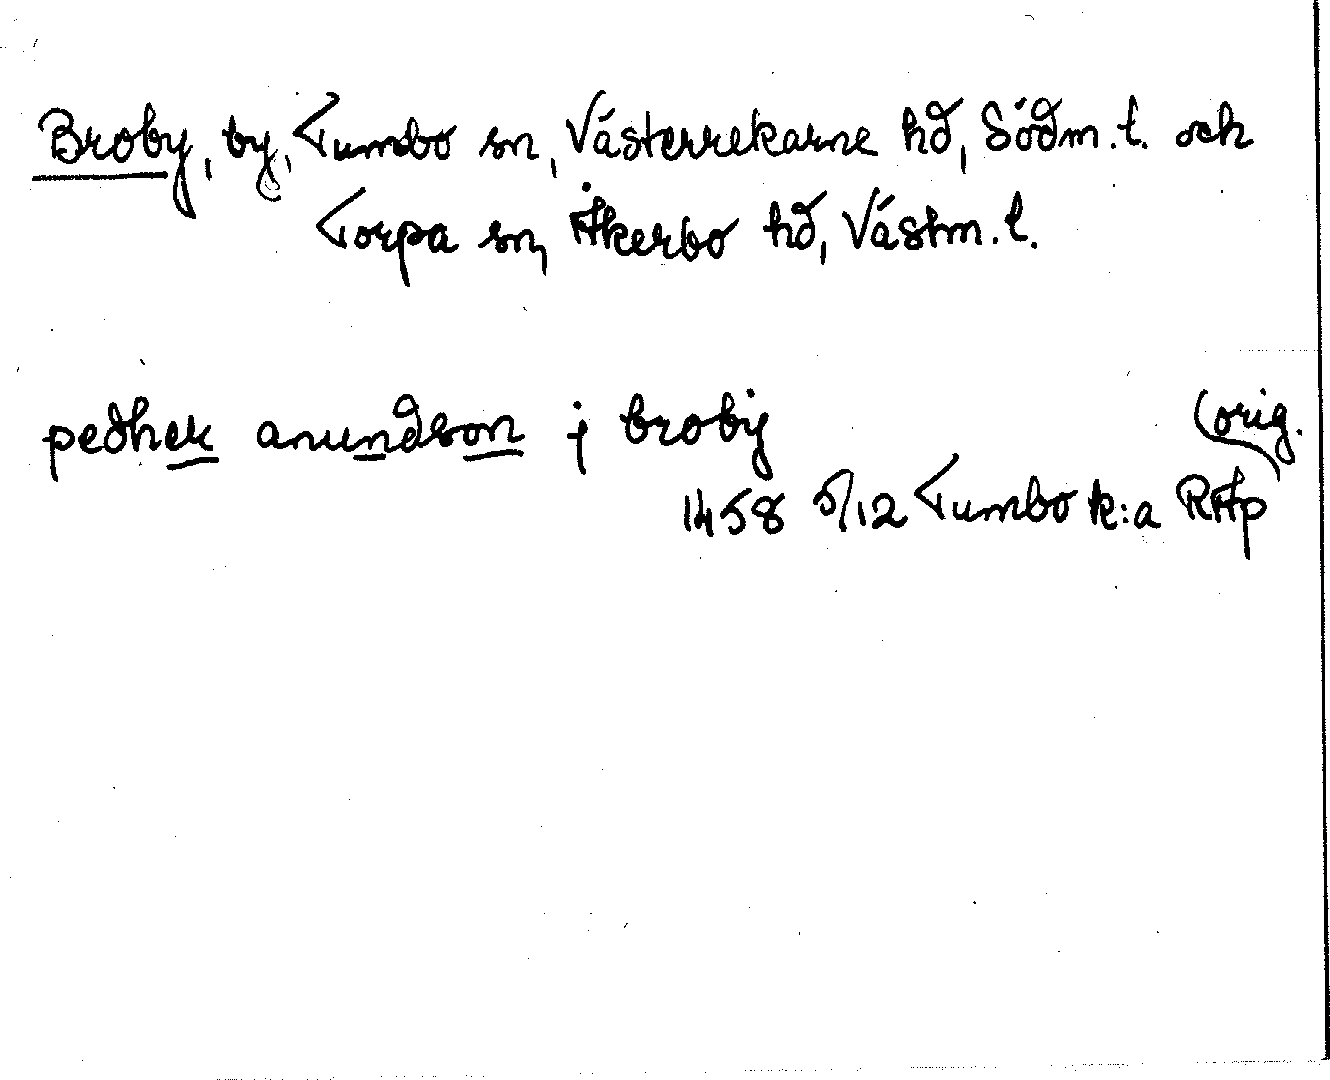 Broby, by, Tumbo sn, Västerrekarne hd, Södm. l. och
Torpa sn, Åkerbo hd, Västm. l.
pedhek anundson j broby
(orig.
1458 5/12 Tumbo k:a RAp